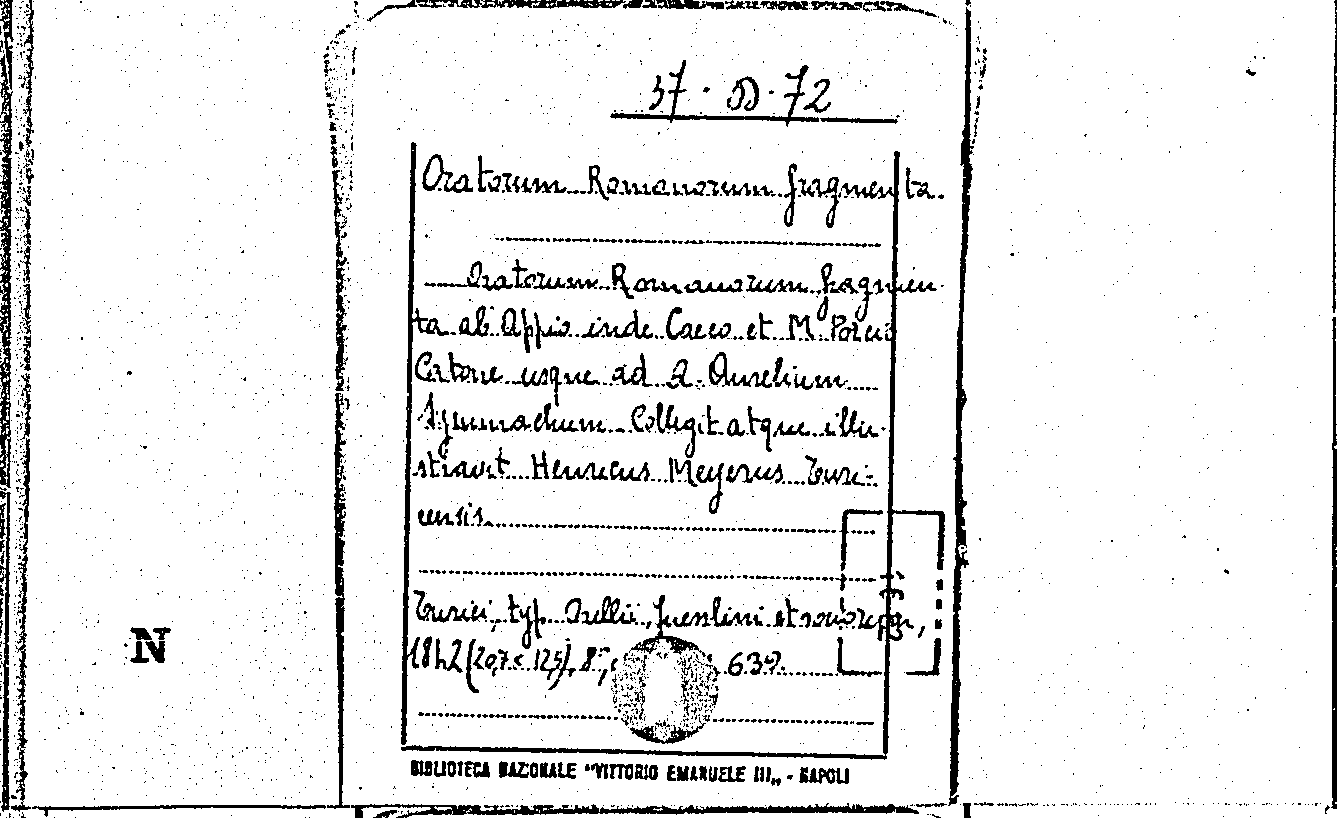 37 · D · 72
Oratorum Romanorum fragmenta.
Oratorum Romanorum fragmen-
ta ab Appio inde Caeco et M. Porcio
Catone usque ad Q. Aurelium
Symmachum. Collegit atque illu-
stravit Henricus Meyerus Turi-
censis.
Turici, typ. Orellii, Fuesslini et
1842 (20,7 x 12,5), 8°, 632.
N
BIBLIOTECA NAZIONALE "VITTORIO EMANUELE III„ - NAPOLI